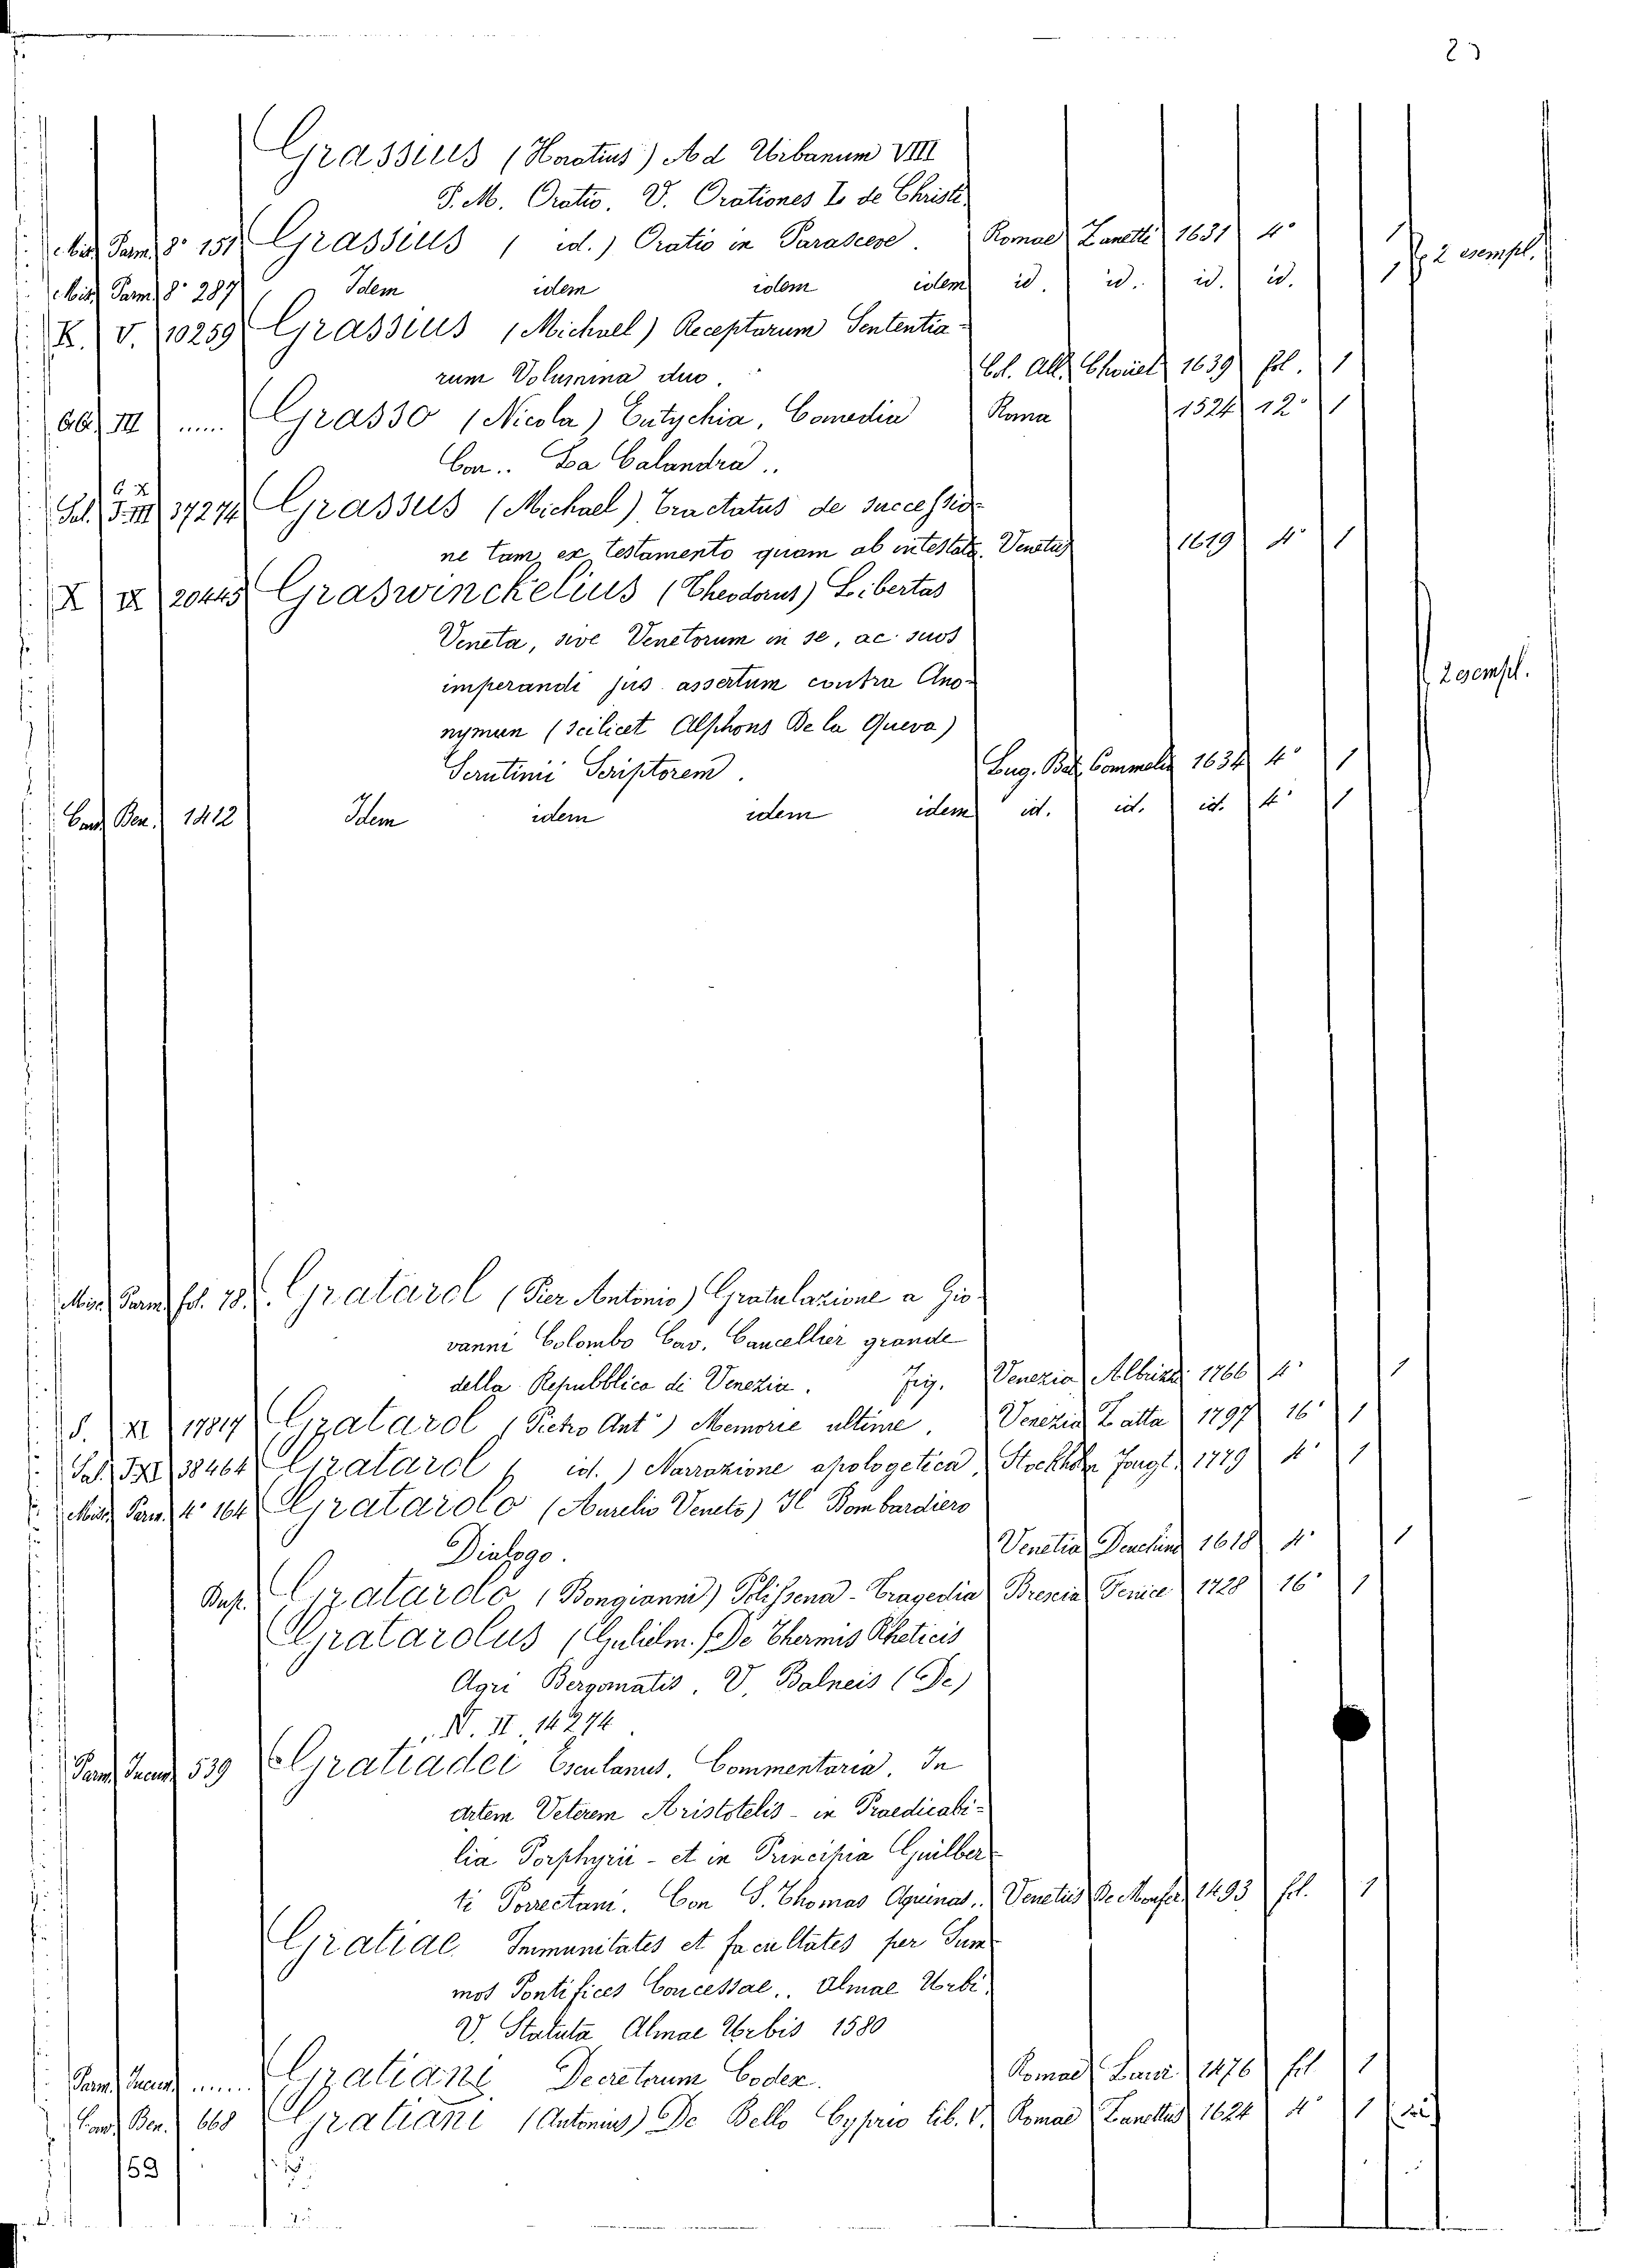 Grassius (Horatius) Ad Urbanum VIII
P. M. Oratio. V. Orationes to de Christi
Misc. Parm. 8° 151 Grassius ( id. ) Oratio in Parasceve. Romae Zanetti 1631 4° 1
2 esempl.
Misc. Parm. 8° 287 Idem idem idem idem id. id. id. id. 1
K. V. 10259 Grassius (Michael) Receptarum Sententia-
rum Volumina duo. Col. All. Chouet 1639 fol. 1
GG. III ..... Grasso (Nicola) Eutychia, Comedia Roma 1524 12° 1
Con.. La Calandra..
C X
Sal. T. III 37274 Grassus (Michael) Tractatus de successio-
ne tam ex testamento quam ab intestato. Venetiis 1619 4° 1
X IX 20445 Graswinckelius (Theodorus) Libertas
Veneta, sive Venetorum in se, ac suos
imperandi jus assertum contra Ano-
nymum (scilicet Alphons De la Queva)
Scrutinii Scriptorem. Lug. Bat. Commelin 1634 4° 1
2 esempl.
Cand. Ben. 1412 Idem idem idem idem id. id. id. 4° 1
Misc. Parm. fol. 78. Gratarol (Pier Antonio) Gratulazione a Gio-
vanni Colombo Cav. Cancellier grande
della Repubblica di Venezia. Fig. Venezia Albrizzi 1766 4° 1
S. XI 17817 Gratarol (Pietro Ant°) Memorie ultime. Venezia Zatta 1797 16° 1
Sal. T.XI 38464 Gratarol ( id. ) Narrazione apologetica Stockholm Fougt. 1779 4° 1
Misc. Parm. 4° 164 Gratarolo (Aurelio Veneto) Il Bombardiero
Dialogo. Venetia Deuchino 1618 4° 1
Dup. Gratarolo (Bongianni) Polissena - Tragedia Brescia Fenice 1728 16° 1
Gratarolus (Gulielm.) De Thermis Rheticis
Agri Bergomatis. V. Balneis (De)
N. II. 14274
Parm. Incun. 539 Gratiadei Esculanus. Commentaria. In
artem Veterem Aristotelis - in Praedicabi-
lia Porphyrii - et in Principia Guilber-
ti Porrectani. Con S. Thomas Aquinas.. Venetiis De Monfer. 1493 fol. 1
Gratiae Immunitates et facultates per Sum-
mos Pontifices Concessae.. Almae Urbi.
V. Statuta Almae Urbis 1580
Parm. Incun. ..... Gratiani Decretorum Codex. Romae Lauer. 1476 fol 1
Cand. Ben. 668 Gratiani (Antonius) De Bello Cyprio lib. V. Romae Zanettus 1624 4° 1
159